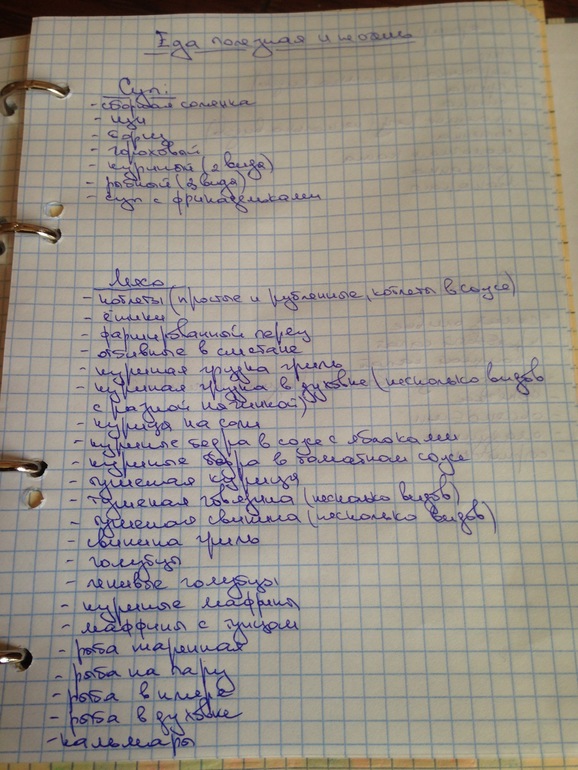 Еда полезная и не очень
Суп:
- сборная солянка
- щи
- борщ
- гороховый
- куриный (2 вида)
- рыбный (2 вида)
- суп с фрикадельками
Мясо
- котлеты (простые и рубленные, котлеты в соусе)
- ёжики
- фаршированный перец
- отбивные в сметане
- куриная грудка гриль
- куриная грудка в духовке (несколько видов
с разной начинкой)
- курица на соли
- куриные бедра в соусе с яблоками
- куриные бедра в томатном соусе
- тушеная курица
- тушеная говядина (несколько видов)
- тушеная свинина (несколько видов)
- свинина гриль
- голубцы
- ленивые голубцы
- куриные маффины
- маффины с тунцом
- рыба жаренная
- рыба на пару
- рыба в кляре
- рыба в духовке
- кальмары